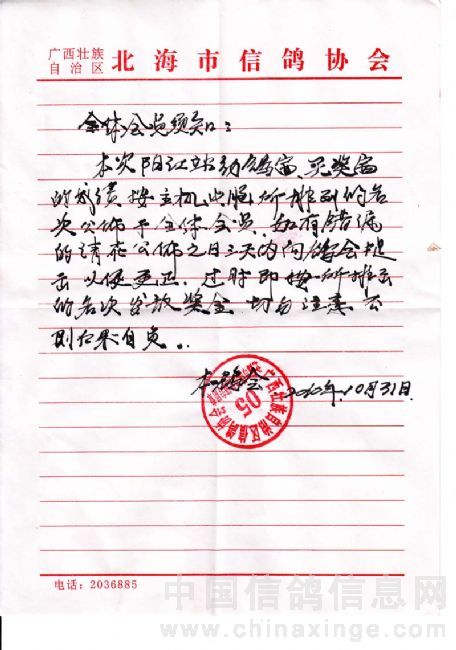 广西壮族
自治区 北海市信鸽协会
全体会员须知：
本次阳江站幼鸽赛、无奖赛
的成绩按主机 所排到的名
次公佈于全体会员，如有错漏
的请在公佈之日三天内向鸽会提
示以便更正。过时即按所排出
的名次发放奖金，切勿注意否
则后果自负。
本鸽会 2010年.10月31日.
广西壮族自治区信鸽协会
05
电话：2036885
中国信鸽信息网
www.chinaxinge.com